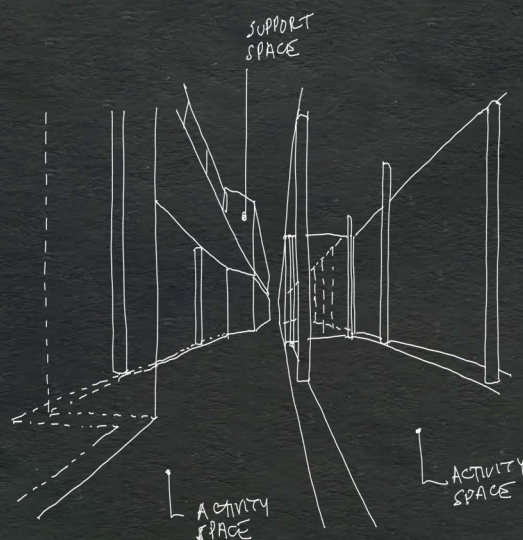 SUPPORT
SPACE
ACTIVITY
SPACE
ACTIVITY
SPACE